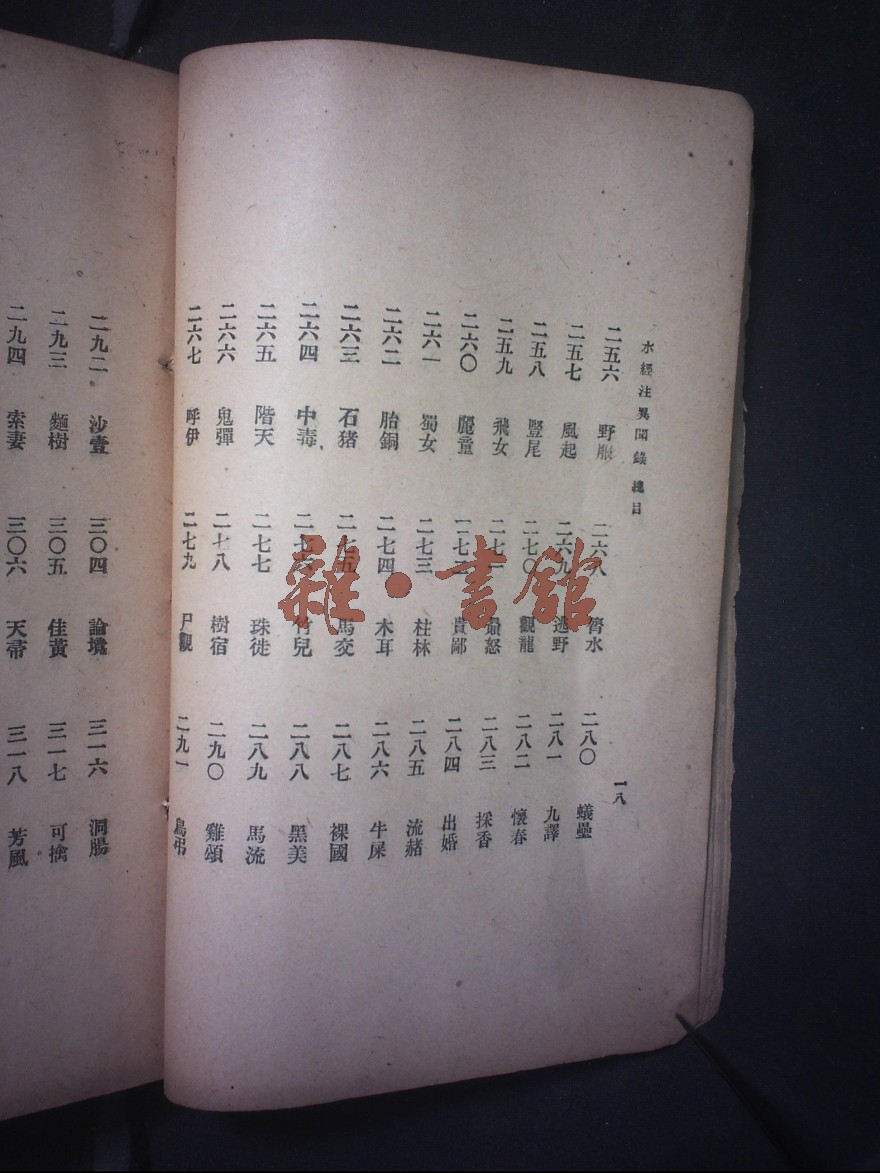 水經注異聞錄 總目
一八
二五六 野脤
二五七 風起
二五八 豎尾
二五九 飛女
二六〇 麗童
二六一 蜀女
二六二 胎銅
二六三 石猪
二六四 中毒
二六五 階天
二六六 鬼彈
二六七 呼伊
二六八 膂水
二六九 逃野
二七〇 觀龍
二七一 怒
二七二 賁鄙
二七三 桂林
二七四 木耳
二七五 馬交
二七六 竹兒
二七七 珠徙
二七八 樹宿
二七九 尸觀
二八〇 蟻壘
二八一 九譯
二八二 懷春
二八三 採香
二八四 出婚
二八五 流赭
二八六 牛屎
二八七 裸國
二八八 黑美
二八九 馬流
二九〇 雞頌
二九一 鳥弔
二九二 沙壹
二九三 麵樹
二九四 索妻
三〇四 論墝
三〇五 佳黃
三〇六 天帚
三一六 洞腸
三一七 可擒
三一八 芳風
雜·書館